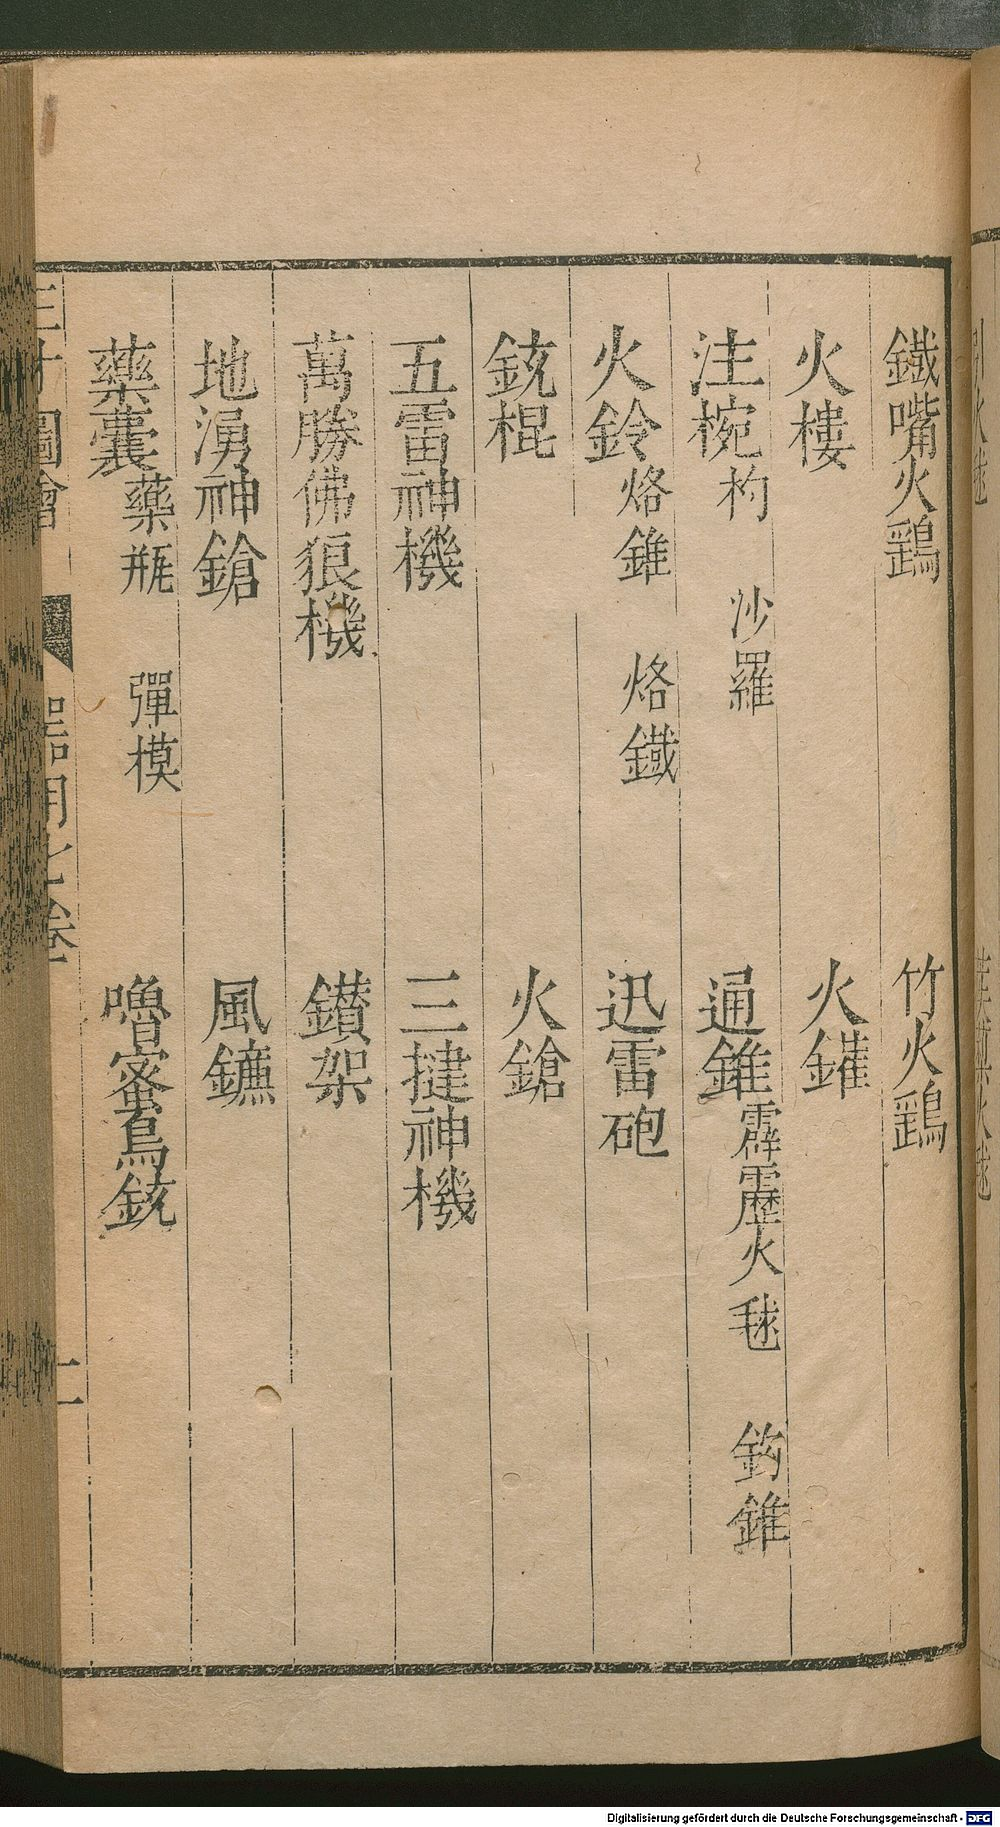 鐵嘴火鷄 竹火鷄
火樓 火鑵
注椀 杓 沙羅 通錐 霹靂火毬 鈎錐
火鈴 烙錐 烙鐵 迅雷砲
銃棍 火鎗
五雷神機 三揵神機
萬勝佛狼機 鑚架
地湧神鎗 風鐮
藥囊 藥瓶 彈模 嚕蜜鳥銃
三才圖會 器用七卷 二
Digitalisierung gefördert durch die Deutsche Forschungsgemeinschaft - DFG